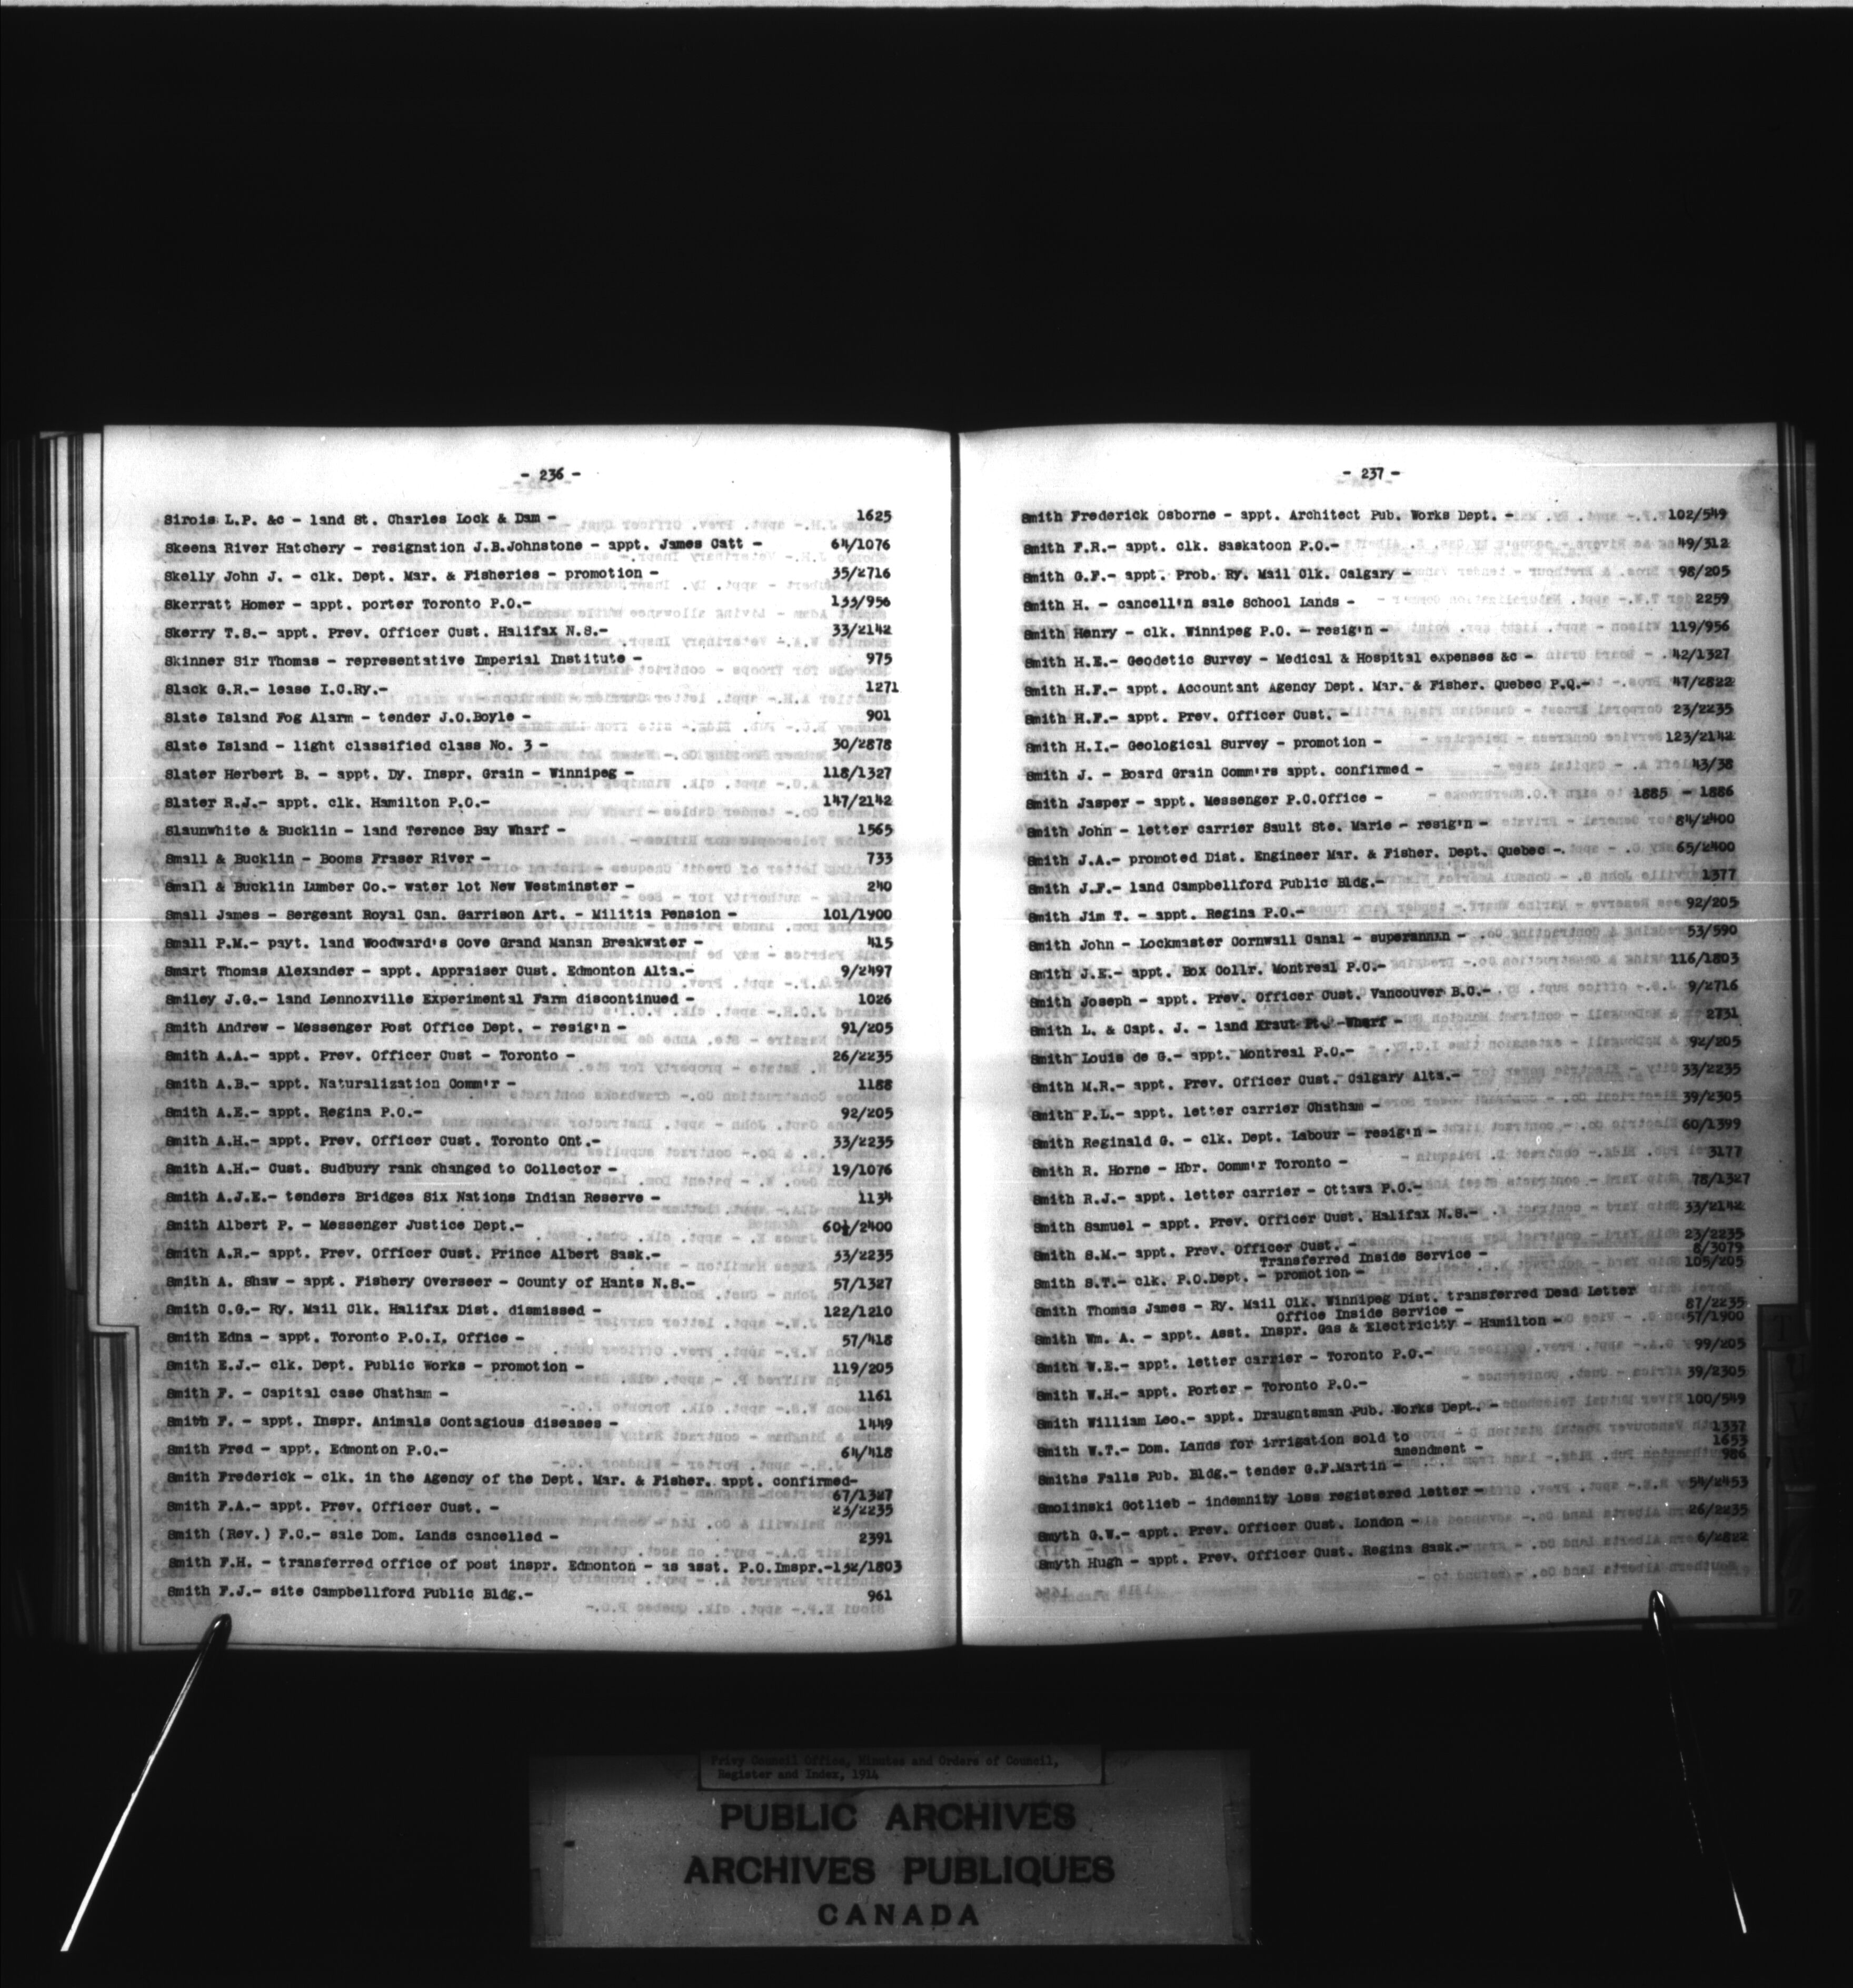 - 236 -
Sirois L.P. &c - land St. Charles Lock & Dam - 1625
Skeena River Hatchery - resignation J.B.Johnstone - appt. James Catt - 64/1076
Skelly John J. - clk. Dept. Mar. & Fisheries - promotion - 35/2716
Skerratt Homer - appt. porter Toronto P.O.- 133/956
Skerry T.S.- appt. Prev. Officer Cust. Halifax N.S.- 33/2142
Skinner Sir Thomas - representative Imperial Institute - 975
Slack G.R.- lease I.C.Ry.- 1271
Slate Island Fog Alarm - tender J.O.Boyle - 901
Slate Island - light classified class No. 3 - 30/2878
Slater Herbert B. - appt. Dy. Inspr. Grain - Winnipeg - 118/1327
Slater R.J.- appt. clk. Hamilton P.O.- 147/2142
Slaunwhite & Bucklin - land Terence Bay Wharf - 1565
Small & Bucklin - Booms Fraser River - 733
Small & Bucklin Lumber Co.- water lot New Westminster - 240
Small James - Sergeant Royal Can. Garrison Art. - Militia Pension - 101/1900
Small P.M.- payt. land Woodward's Cove Grand Manan Breakwater - 415
Smart Thomas Alexander - appt. Appraiser Cust. Edmonton Alta.- 9/2497
Smiley J.G.- land Lennoxville Experimental Farm discontinued - 1026
Smith Andrew - Messenger Post Office Dept. - resig'n - 91/205
Smith A.A.- appt. Prev. Officer Cust - Toronto - 26/2235
Smith A.B.- appt. Naturalization Comm'r - 1188
Smith A.E.- appt. Regina P.O.- 92/205
Smith A.H.- appt. Prev. Officer Cust. Toronto Ont.- 33/2235
Smith A.H.- Cust. Sudbury rank changed to Collector - 19/1076
Smith A.J.E.- tenders Bridges Six Nations Indian Reserve - 1134
Smith Albert P. - Messenger Justice Dept.- 60½/2400
Smith A.R.- appt. Prev. Officer Cust. Prince Albert Sask.- 33/2235
Smith A. Shaw - appt. Fishery Overseer - County of Hants N.S.- 57/1327
Smith C.G.- Ry. Mail Clk. Halifax Dist. dismissed - 122/1210
Smith Edna - appt. Toronto P.O.I. Office - 57/418
Smith E.J.- clk. Dept. Public Works - promotion - 119/205
Smith F. - Capital case Chatham - 1161
Smith F. - appt. Inspr. Animals Contagious diseases - 1449
Smith Fred - appt. Edmonton P.O.- 64/418
Smith Frederick - clk. in the Agency of the Dept. Mar. & Fisher. appt. confirmed-
67/1327
Smith F.A.- appt. Prev. Officer Cust. - 23/2235
Smith (Rev.) F.C.- sale Dom. Lands cancelled - 2391
Smith F.H. - transferred office of post inspr. Edmonton - as asst. P.O.Inspr.-132/1803
Smith F.J.- site Campbellford Public Bldg.- 961
- 237 -
Smith Frederick Osborne - appt. Architect Pub. Works Dept. - 102/549
Smith F.R.- appt. clk. Saskatoon P.O.- 49/312
Smith G.F.- appt. Prob. Ry. Mail Clk. Calgary - 98/205
Smith H. - cancell'n sale School Lands - 2259
Smith Henry - clk. Winnipeg P.O. - resig'n - 119/956
Smith H.E.- Geodetic Survey - Medical & Hospital expenses &c - 42/1327
Smith H.F.- appt. Accountant Agency Dept. Mar. & Fisher. Quebec P.Q.- 47/2822
Smith H.F.- appt. Prev. Officer Cust. - 23/2235
Smith H.I.- Geological Survey - promotion - 123/2142
Smith J. - Board Grain Comm'rs appt. confirmed - 43/38
Smith Jasper - appt. Messenger P.C.Office - 1885 - 1886
Smith John - letter carrier Sault Ste. Marie - resig'n - 84/2400
Smith J.A.- promoted Dist. Engineer Mar. & Fisher. Dept. Quebec - 65/2400
Smith J.F.- land Campbellford Public Bldg.- 1377
Smith Jim T. - appt. Regina P.O.- 92/205
Smith John - Lockmaster Cornwall Canal - superann - 53/590
Smith J.E.- appt. Box Collr. Montreal P.O.- 116/1803
Smith Joseph - appt. Prev. Officer Cust. Vancouver B.C.- 9/2716
Smith L. & Capt. J. - land Kraut Pt. Wharf - 2731
Smith Louis de G.- appt. Montreal P.O.- 92/205
Smith M.R.- appt. Prev. Officer Cust. Calgary Alta.- 33/2235
Smith P.L.- appt. letter carrier Chatham - 39/2305
Smith Reginald G. - clk. Dept. Labour - resig'n - 60/1399
Smith R. Horne - Hbr. Comm'r Toronto - 3177
Smith R.J.- appt. letter carrier - Ottawa P.O.- 78/1327
Smith Samuel - appt. Prev. Officer Cust. Halifax N.S.- 33/2142
Smith S.M.- appt. Prev. Officer Cust. - 23/2235
Transferred Inside Service - 8/3079
Smith S.T.- clk. P.O.Dept. - promotion - 105/205
Smith Thomas James - Ry. Mail Clk. Winnipeg Dist. transferred Dead Letter
Office Inside Service - 87/2235
Smith Wm. A. - appt. Asst. Inspr. Gas & Electricity - Hamilton - 57/1900
Smith W.E.- appt. letter carrier - Toronto P.O.- 99/205
Smith W.H.- appt. Porter - Toronto P.O.- 39/2305
Smith William Leo.- appt. Draughtsman Pub. Works Dept. - 100/549
Smith W.T.- Dom. Lands for irrigation sold to 1337
amendment - 1653
Smiths Falls Pub. Bldg.- tender G.F.Martin - 986
Smolinski Gotlieb - indemnity loss registered letter - 54/2453
Smyth G.W.- appt. Prev. Officer Cust. London - 26/2235
Smyth Hugh - appt. Prev. Officer Cust. Regina Sask.- 6/2822
Privy Council Office, Minutes and Orders of Council,
Register and Index, 1914
PUBLIC ARCHIVES
ARCHIVES PUBLIQUES
CANADA